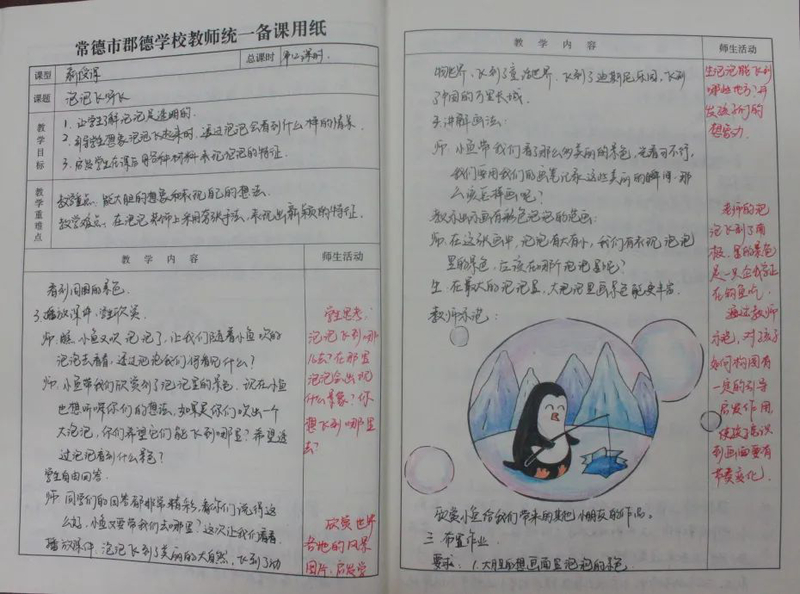 常德市郡德学校教师统一备课用纸
总课时
课型 新授课
课题 泡泡飞呀飞
教学目标
1. 让学生了解泡泡是透明的.
2. 引导学生想象泡泡飞起来时,透过泡泡会看到什么样的情景.
3. 启发学生在课上用各种材料表现泡泡的特征.
教学重难点
教学重点:能大胆的想象和表现自己的想法.
教学难点:在泡泡的表现上采用夸张手法,表现出新颖的特征.
教 学 内 容
师生活动
看到周围的景色.
3.播放课件,学生欣赏
师:瞧,小鱼又吹泡泡了,让我们随着小鱼吹的
泡泡去看看,透过泡泡我们将看见什么?
师:小鱼带我们欣赏到了泡泡里的景色,现在小鱼
也想听听你们的想法,如果是你们吹出一个
大泡泡,你们希望它们能飞到哪里?希望透
过泡泡看到什么景色?
学生自由回答.
师:同学们的回答都非常精彩,看你们说得这
么好,小鱼又要带我们去哪里?这次让我们看看.
播放课件,泡泡飞到了美丽的大自然,飞到了动
学生思考:
泡泡飞到哪
么去?在那里
泡泡会出现
什么景象?你
想飞到哪里
去?
欣赏世界
各地的风景
图片,启发学
教 学 内 容
师生活动
物世界、飞到了童话世界、飞到了迪斯尼乐园,飞到
了中国的万里长城.
4.讲解画法:
师:小鱼带我们看了那么多美丽的景色,光看可不行,
我们要用我们的画笔记录这些美丽的瞬间,那
么该怎样画呢?
教师出示画在彩色泡泡的范画:
师:在这张画中,泡泡有大有小,我们要表现泡泡
里的景色,应该在哪个泡泡里呢?
生:在最大的泡泡里,大泡泡里画景色能更丰富.
教师示范:
欣赏小鱼给我们带来的其他小朋友的作品.
三、布置作业
要求:1.大胆的想画面里泡泡的景色.
生泡泡能飞到
哪些地方?开
发孩子们的
想象力.
老师的泡
泡飞到了南
极,里的景色
是一只企鹅正
在钓鱼吃.
通过教师
示范,对孩子
如何构图有
一定的引导
启发作用,
使孩子意识
到画面要有
节奏变化.